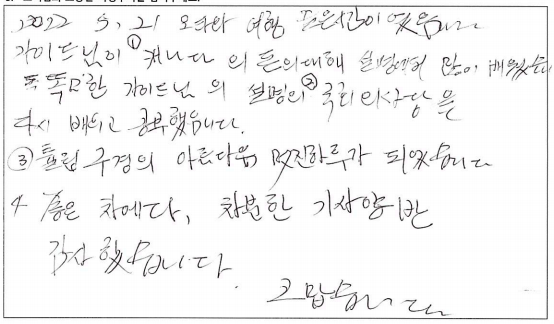 2022 5. 21 오타와 여행 좋은시간이 었읍니다
가이드님이 ① 캐나다 의 돈의대해 설명에서 많이 배웠습니다
똑똑한 가이드님 의 설명의 ② 국회의사당 을
다시 배우고 공부했읍니다.
③ 튤립 구경의 아름다움 멋진하루가 되었습니다
4 좋은 차에다, 차분한 기사양반
감사 했습니다.
고맙습니다